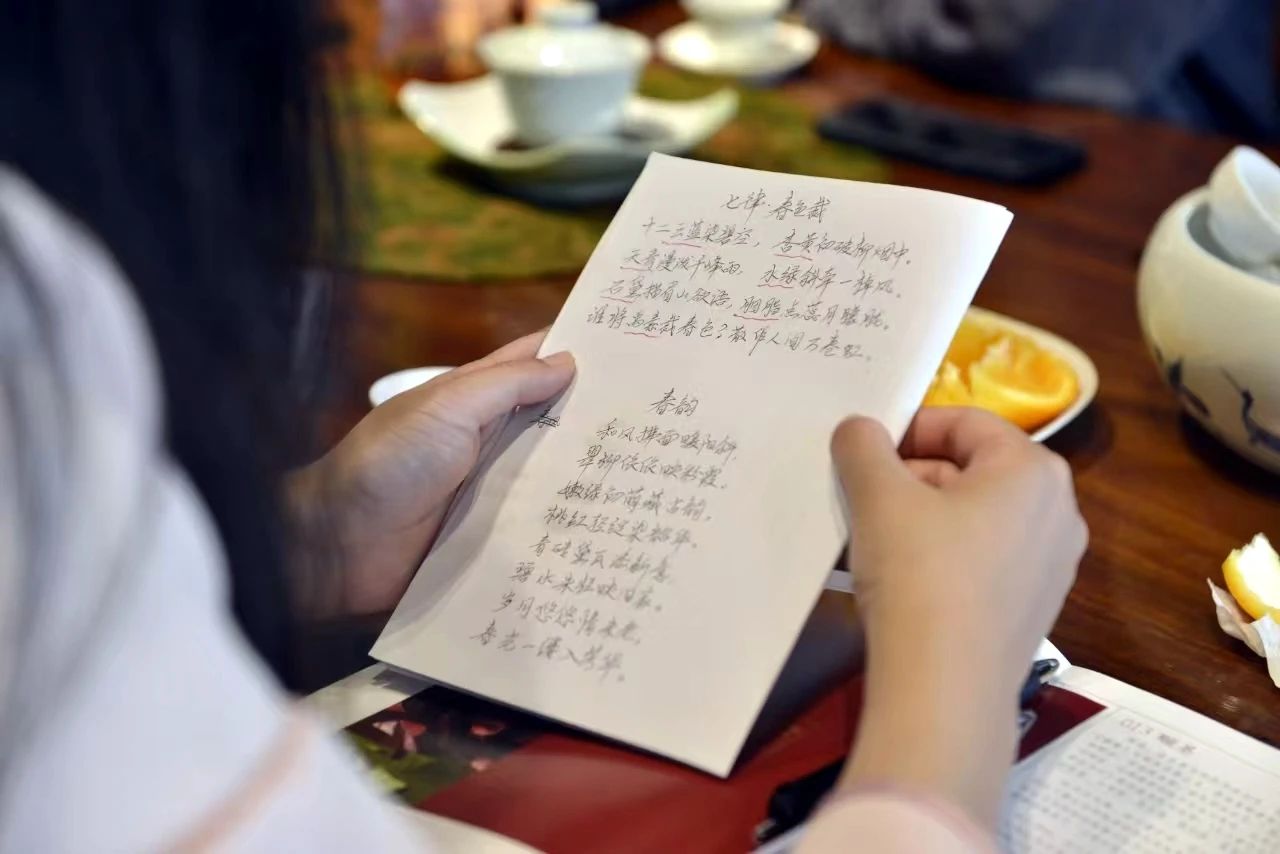 七律·春色裁
十二云蓝染碧空，杏黄初破柳烟中。
天青漫泼千峰雨，水绿斜牵一棹风。
石黛描眉山欲语，胭脂点蕊月朦胧。
谁将尚春裁春色？散作人间万卷红。
春韵
和风拂面暖阳斜，
翠柳依依映彩霞。
嫩绿初萌藏古韵，
桃红轻绽染韶华。
青砖黛瓦添新意，
碧水朱红映旧家。
岁月悠悠情未老，
春光一缕入芳华。